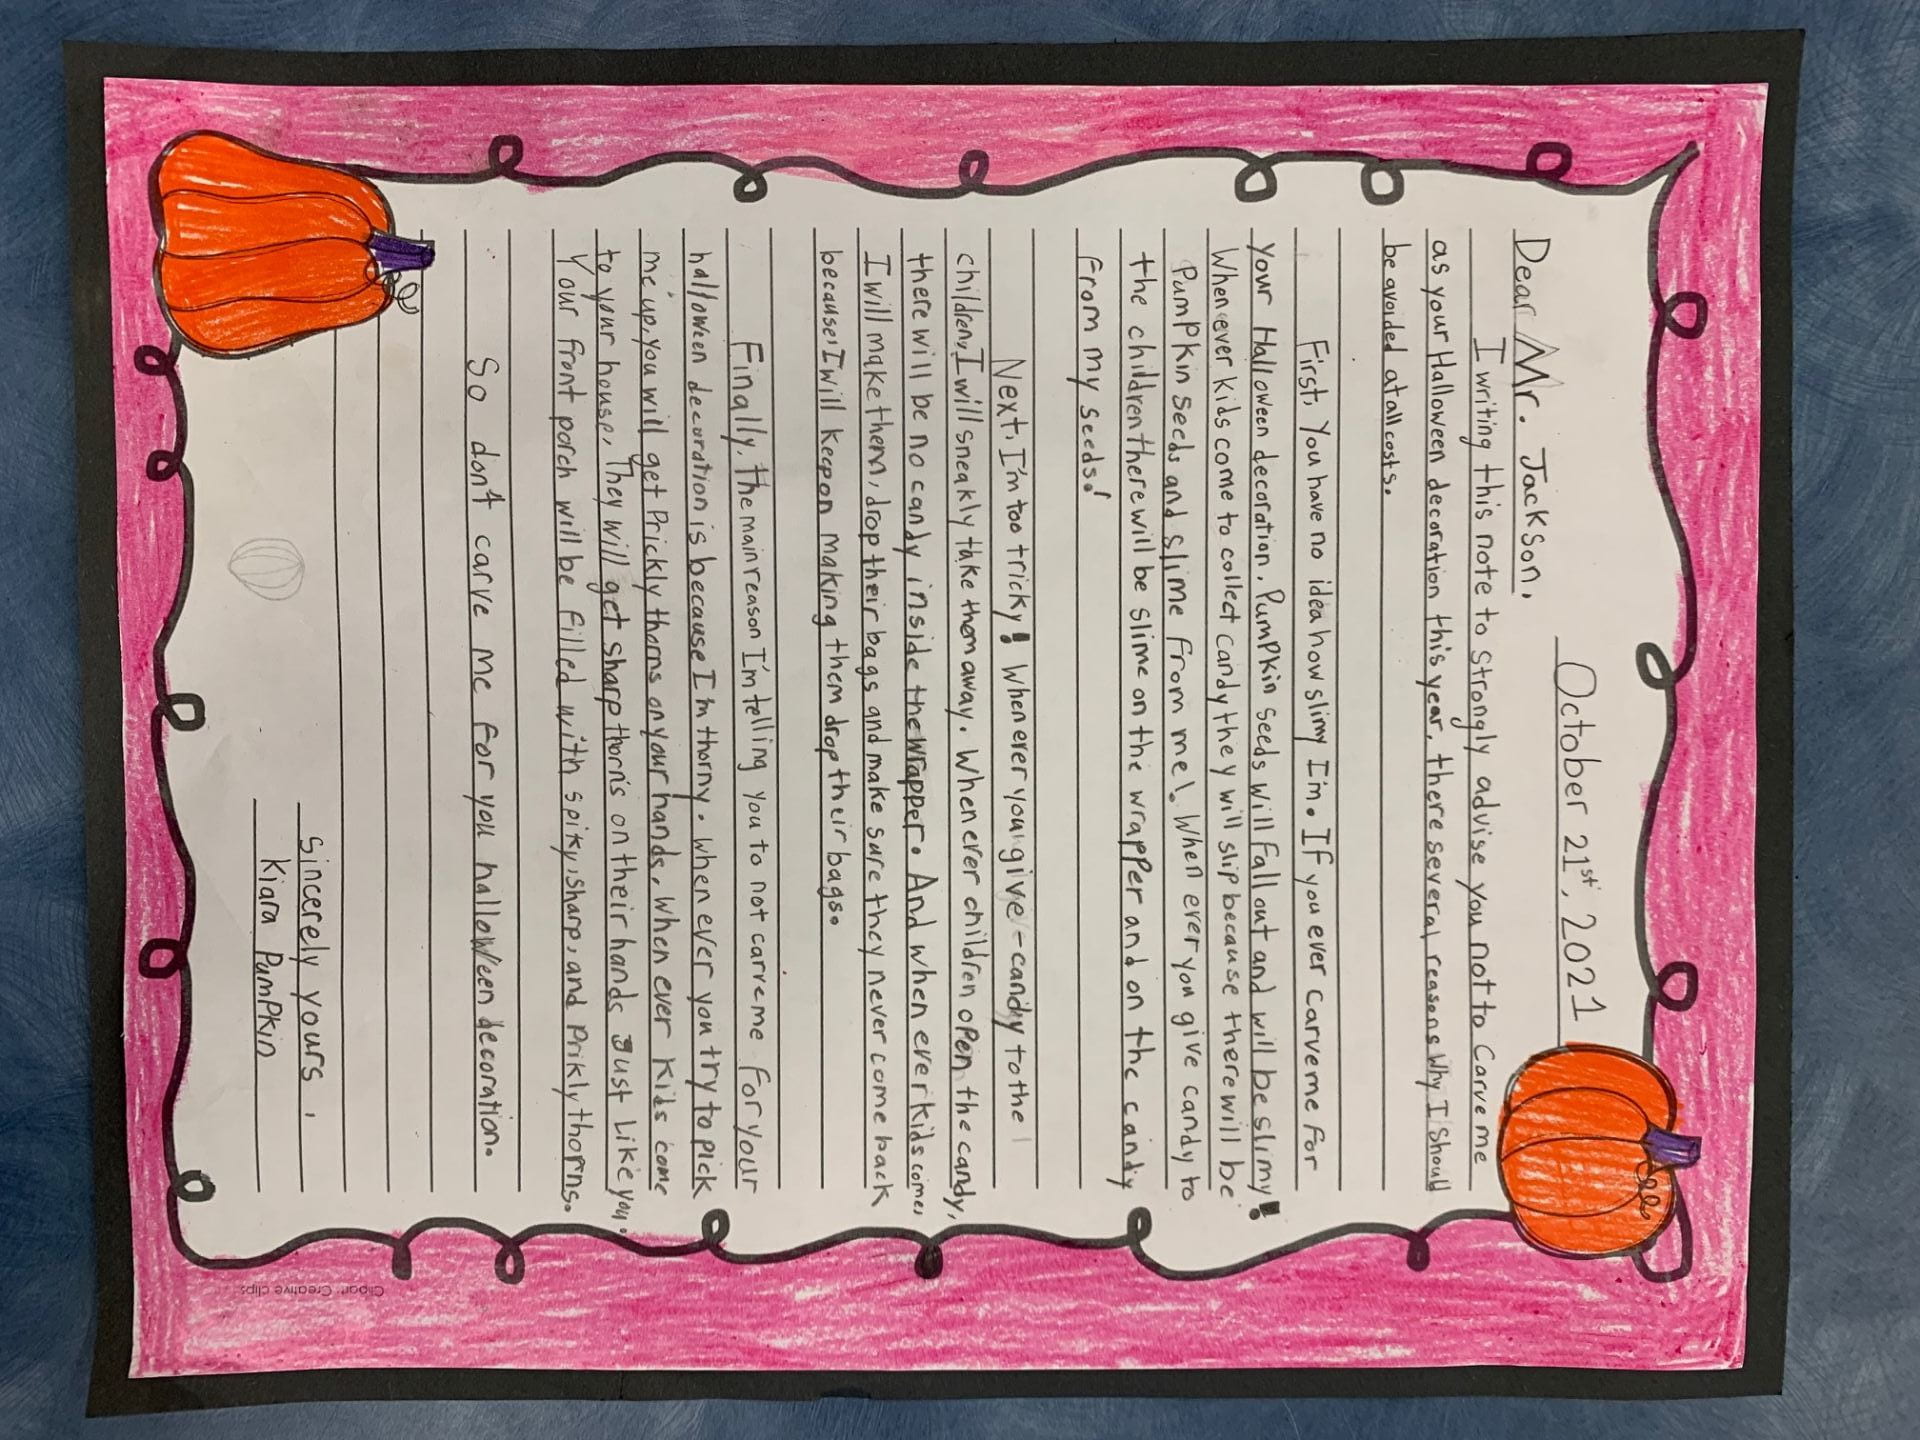 October 21st, 2021
Dear Mr. Jackson,
I writing this note to strongly advise you not to Carve me
as your Halloween decoration this year, there several reasons why I should
be avoided at all costs.
First, You have no idea how slimy I'm. If you ever carve me for
your Halloween decoration. Pumpkin seeds will fall out and will be slimy!
Whenever kids come to collect candy they will slip because there will be
Pumpkin seeds and slime from me!. When ever you give candy to
the children there will be slime on the wrapper and on the candy
from my seeds!
Next, I'm too tricky! When ever you give candy to the
children, I will sneakly take them away. When ever children open the candy,
there will be no candy inside the wrapper. And when ever kids come,
I will make them, drop their bags and make sure they never come back
because, I will keep on making them drop their bags.
Finally, the main reason I'm telling you to not carve me for your
halloween decoration is because I'm thorny. When ever you try to pick
me up, you will get Prickly thorns on your hands. When ever kids come
to your house, They will get sharp thorn's on their hands Just Like you.
Your front porch will be filled with spiky, sharp, and Prikly thorns.
So don't carve me for you halloween decoration.
Sincerely yours,
Kiara PumPkin
Clipart: Creative clips